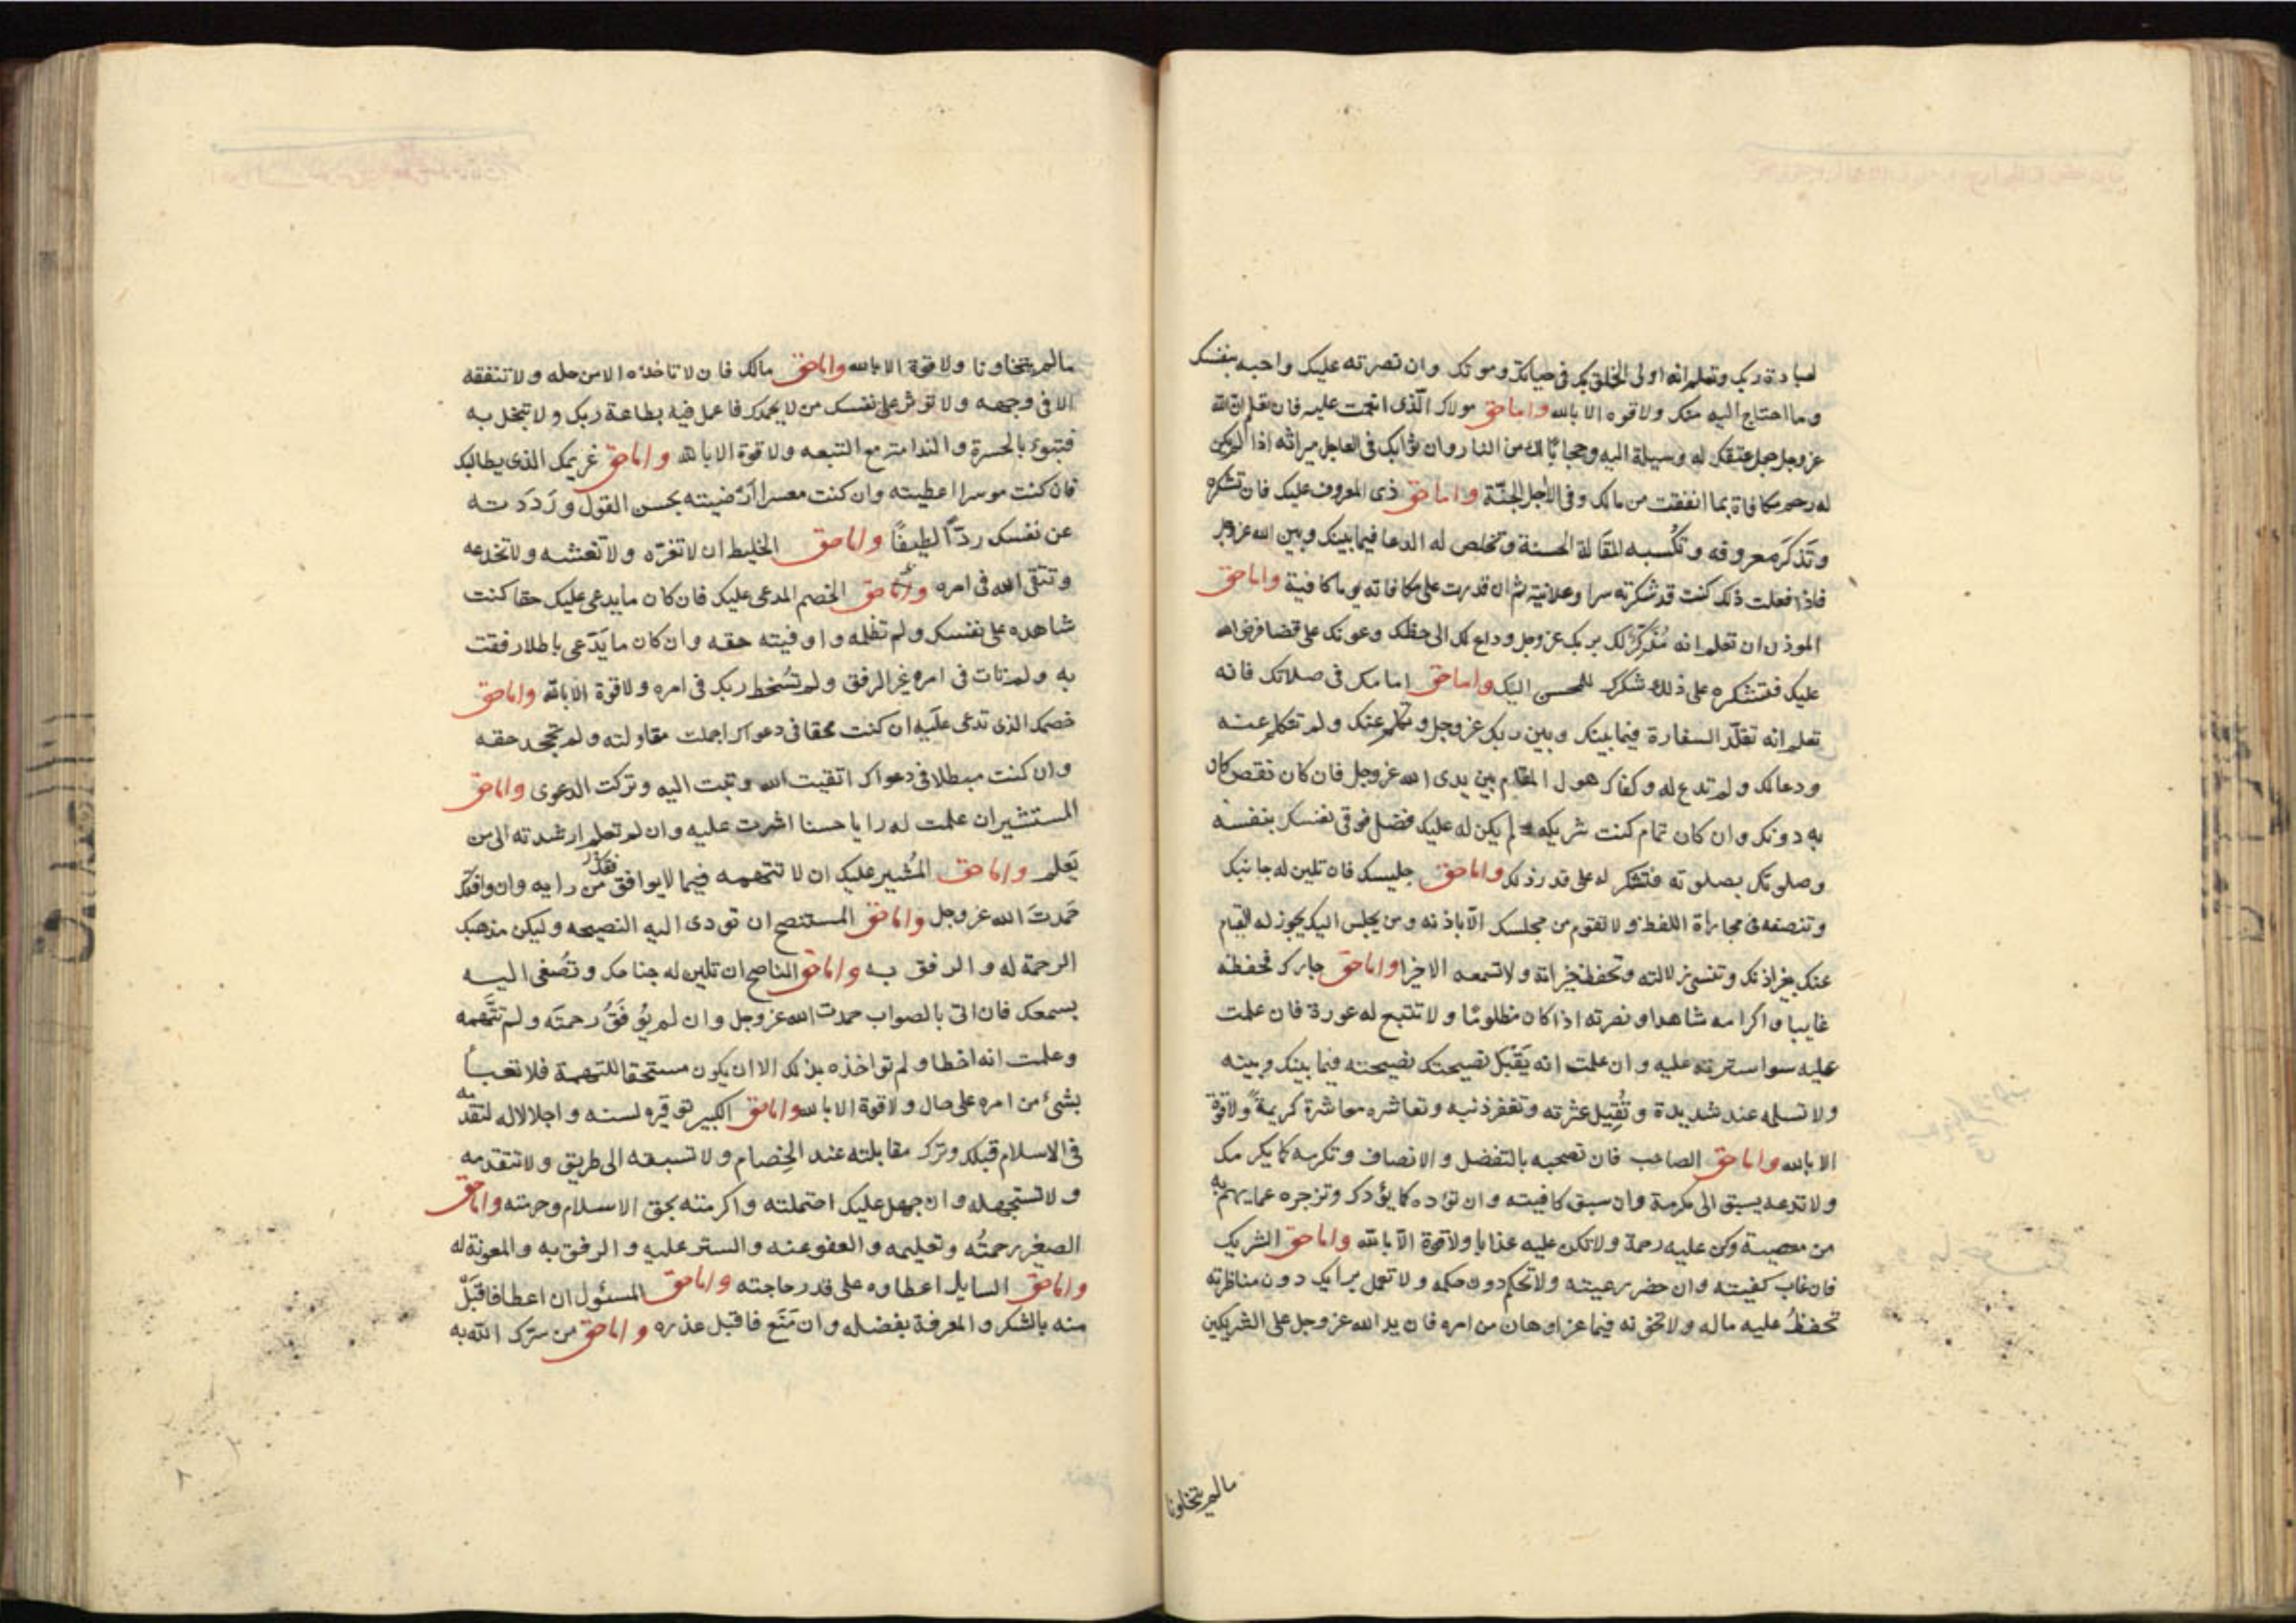 لعبادة ربك وتعلم انه اولى الخلق بك فى حياتك وموتك وان نصرته عليك واجبه بنفسك
وما احتاج اليه منك ولا قوه الا بالله واما حق مولاك الذى انعمت عليه فان تعلم ان الله
عز وجل جعل عتقك له وسيلة اليه وحجابًا لك من النار وان ثوابك فى العاجل ميراثه اذا لم يكن
له رحم مكافاة بما انفقت من مالك وفى الأجل الجنّة واما حق ذى المعروف عليك فان تشكره
وتَذكرَ معروفه وتكْسبه المقَالة الحسنة وتخلص له الدعا فيما بينك وبين الله عز وجل
فاذا فعلت ذلك كنت قد شكرته سرا وعلانية ثم ان قدرت على مكافاته يوما كافيته واما حق
الموذن ان تعلم انه مُذكرٌ لك بربك عز وجل وداع لك الى حظك وعونك على قضا فرض الله
عليك فتشكره على ذلك شكرك للمحسن اليك واما حق امامك فى صلاتك فانه
تعلم انه تقلّد السفارة فيما بينك وبين ربك عز وجل وتكلم عنك ولم تتكلم عنه
ودعا لك ولم تدع له وكفاك هول المقام بين يدى الله عز وجل فان كان نقص كان
به دونك وان كان تمام كنت شريكه لم يكن له عليك فضل فوقى نفسك بنفسه
وصلوتك بصلوته فتشكر له على قدر ذلك واما حق جليسك فان تلين له جانبك
وتنصفه فى مجاراة اللفظ ولا تقوم من مجلسك الّا باذنه ومن يجلس اليك يجوز له القيام
عنك بغير اذنك وتنسى زلالته وتحفظ خيراته ولا تسمعه الا خيرا واما حق جارك فحفظه
غايبا واكرامه شاهدا ونصرته اذا كان مظلومًا ولا تتبع له عورة فان علمت
عليه سوا سترته عليه وان علمت انه يَقْبَل نصيحتك نصيحته فيما بينك وبينه
ولا تسلمه عند شديدة وتُقِيل عثرته وتغفر ذنبه وتعاشره معاشرة كريمة ولا قوة
الا بالله واما حق الصاحب فان تصحبه بالتفضل والانصاف وتكرمه كما يكرمك
ولا تدعه يسبق الى مكرمة وان سبق كافيته وان توده كما يؤدك وتزجره عما يهم به
من معصية وكن عليه رحمة ولا تكن عليه عذابا ولا قوة الّا بالله واما حق الشريك
فان غاب كفيته وان حضر رعيته ولا تحكم دون حكمه ولا تعمل برايك دون مناظرته
تحفظُ عليه ماله ولا تخونه فيما عز او هان من امره فان يد الله عز وجل على الشريكين
ما لم يتخاونا
ما لم يتخاونا ولا قوة الا بالله واما حق مالك فان لا تاخذه الا من حله ولا تنفقه
الا فى وجهه ولا توثر على نفسك من لا يحمدك فاعمل فيه بطاعة ربك ولا تبخل به
فتبوء بالحسرة والندامة مع التبعه ولا قوة الا بالله واما حق غريمك الذى يطالبك
فان كنت موسرا اعطيته وان كنت معسرا ارْضيته بحسن القول وَرَدَدته
عن نفسك ردّاً لطيفًا واما حق الخليط ان لا تغرّه ولا تغشه ولا تخدعه
وتتقى الله فى امره واما حق الخصم المدعى عليك فان كان ما يدعى عليك حقا كنت
شاهده على نفسك ولم تظلمه واوفيته حقه وان كان ما يَدّعى باطلا رفقت
به ولم تات فى امره غير الرفق ولم تسُخط ربك فى امره ولا قوة الا بالله واما حق
خصمك الذى تدعى علَيه ان كنت محقا فى دعواك اجملت مقاولته ولم تجحد حقه
وان كنت مبطلا فى دعواك اتقيت الله وتبت اليه وتركت الدعوى واما حق
المستشير ان علمت له رايا حسنا اشرت عليه وان لم تعلم ارشدته الى من
يَعلم واما حق المُشير عليك ان لا تتهمه فيما لا يوافقك من رايه وان وافقك
حَمدتَ الله عز وجل واما حق المستنصح ان تودى اليه النصيحه وليكن مذهبك
الرحمة له والرفق به واما حق الناصح ان تلين له جناحك وتصُغى اليه
بسمعك فان اتى بالصواب حمدت الله عز وجل وان لم يُوفَقُ رحمتَه ولم تتَّهمه
وعلمت انه اخطا ولم تواخذه بذلك الا ان يكون مستحقا للتهمة فلا تعبأ
بشئ من امره على حال ولا قوة الا بالله واما حق الكبير توقيره لسنه واجلالاله لتقدمه
فى الاسلام قبلك وترك مقابلته عند الخِصام ولا تسبقه الى طريق ولا تتقدمه
ولا تستجهله وان جهل عليك احتملته واكرمته بحق الاسلام وحرمته واما حق
الصغير رحمتُه وتعليمه والعفو عنه والستر عليه والرفق به والمعونة له
واما حق السايل اعطاوه على قدر حاجته واما حق المسئول ان اعطا فاقبَلْ
منه بالشكر والمعرفة بفضله وان مَنَع فاقبل عذره واما حق من سرّك الله به